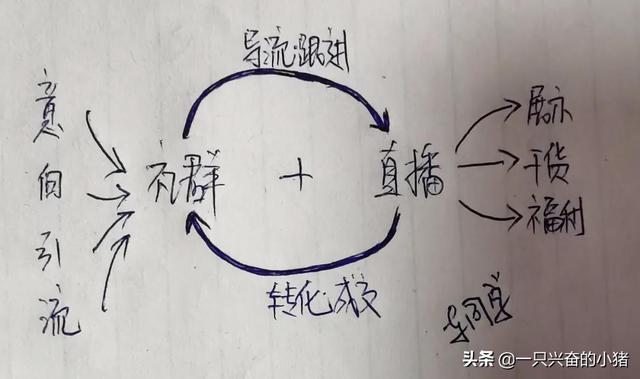 导流·跟刺
意向引流
社群
+
直播
展示
干货
福利
转化·成交
头条 @一只兴奋的小猪